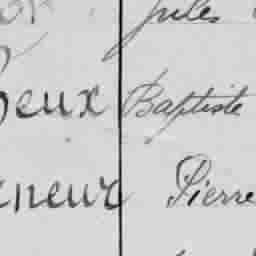 Jules
eux Baptiste
neur Pierre